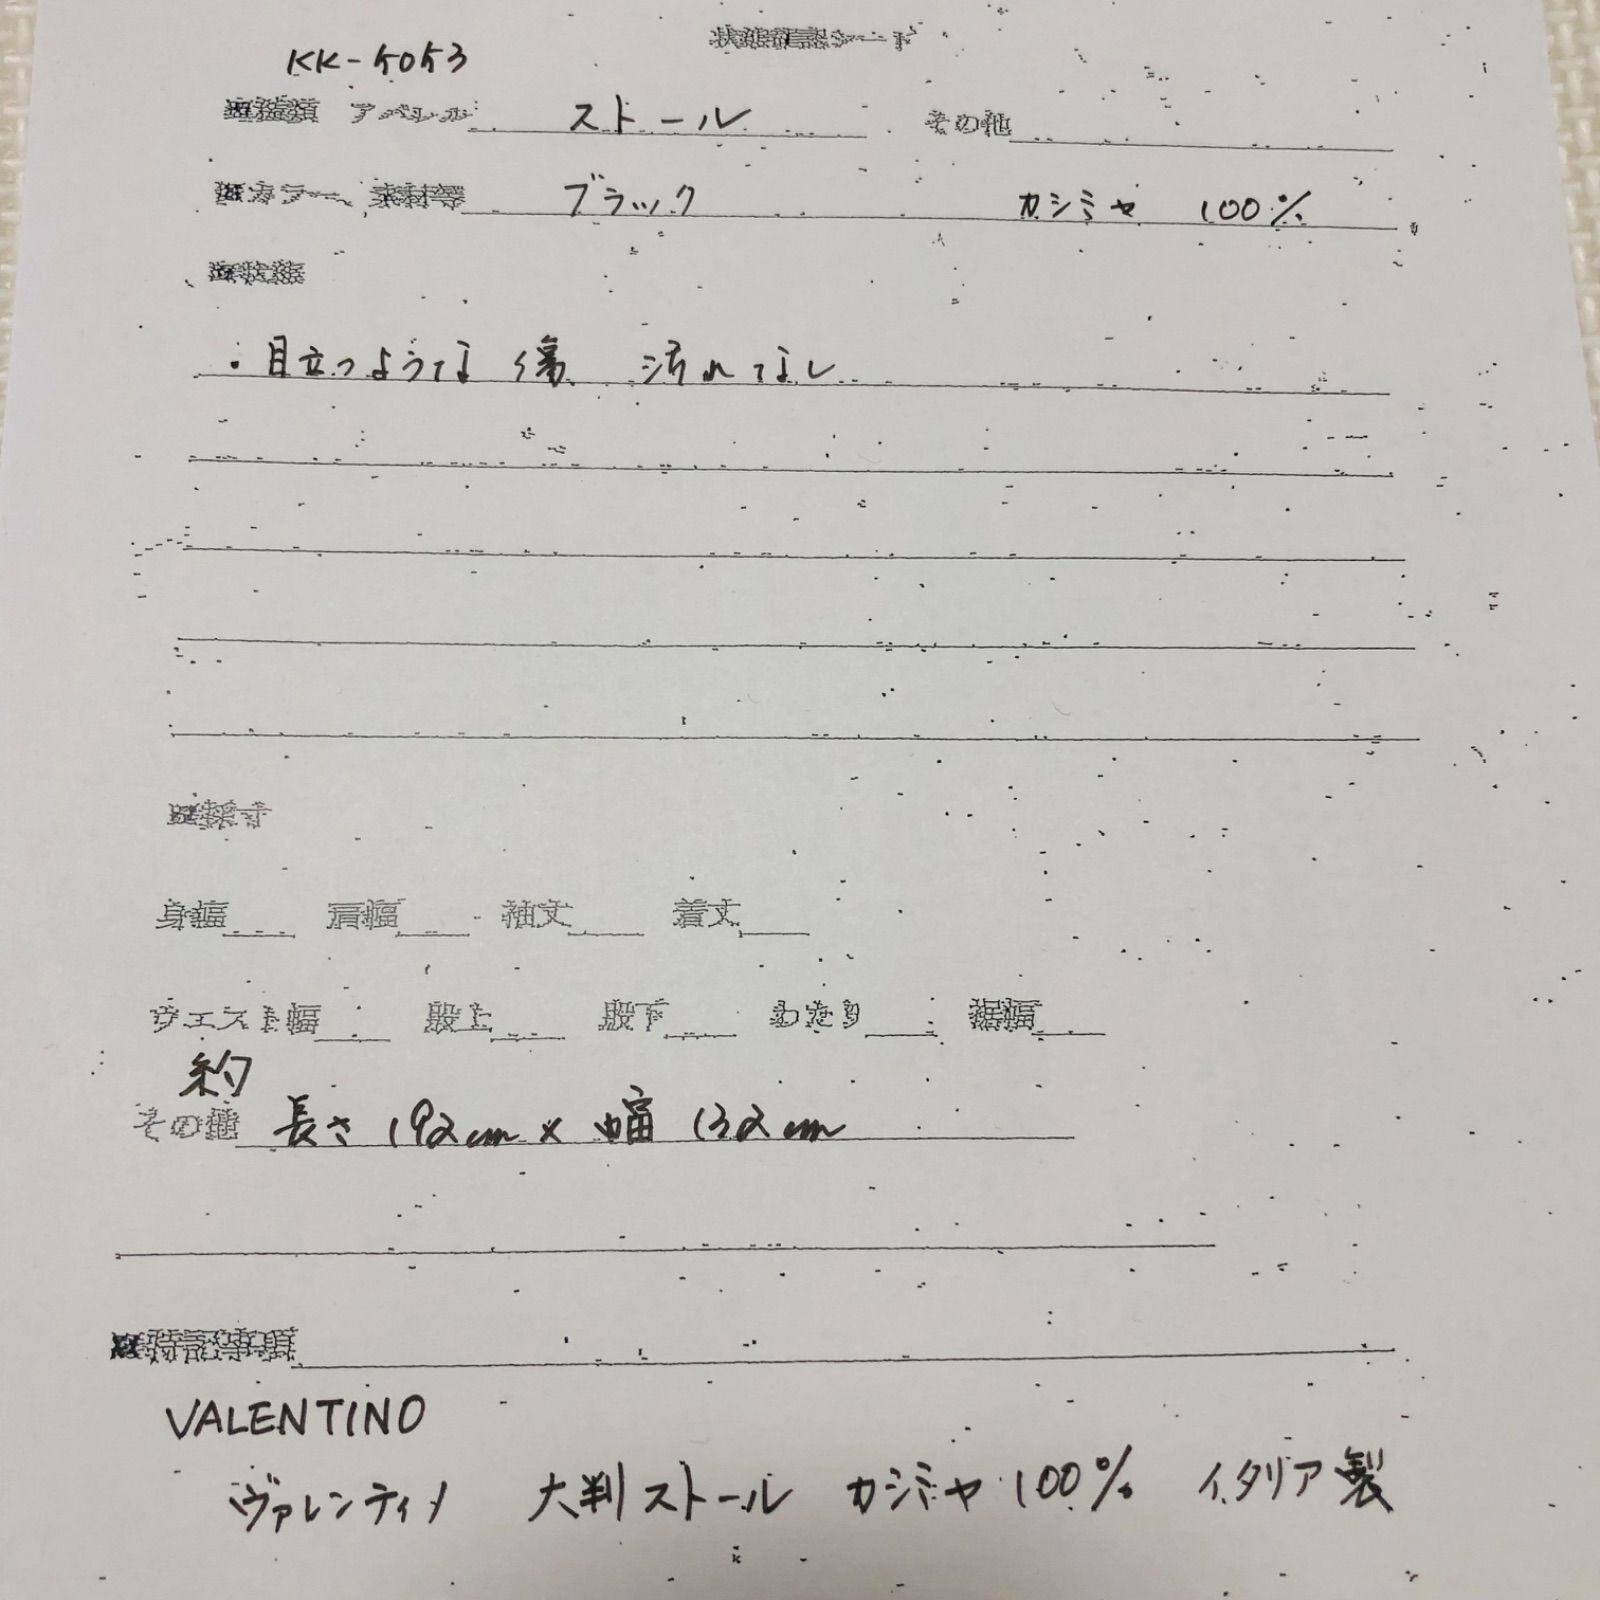 状態確認シート
KK-5053
■種類 アパレル ストール その他
■カラー、素材等 ブラック カシミヤ 100%
■状態
・目立つような傷 汚れてなし
■採寸
身幅 肩幅 袖丈 着丈
ウエスト幅 股上 股下 わたり 裾幅
約
その他 長さ192cm×幅132cm
■特記事項
VALENTINO
ヴァレンティノ 大判ストール カシミヤ100% イタリア製